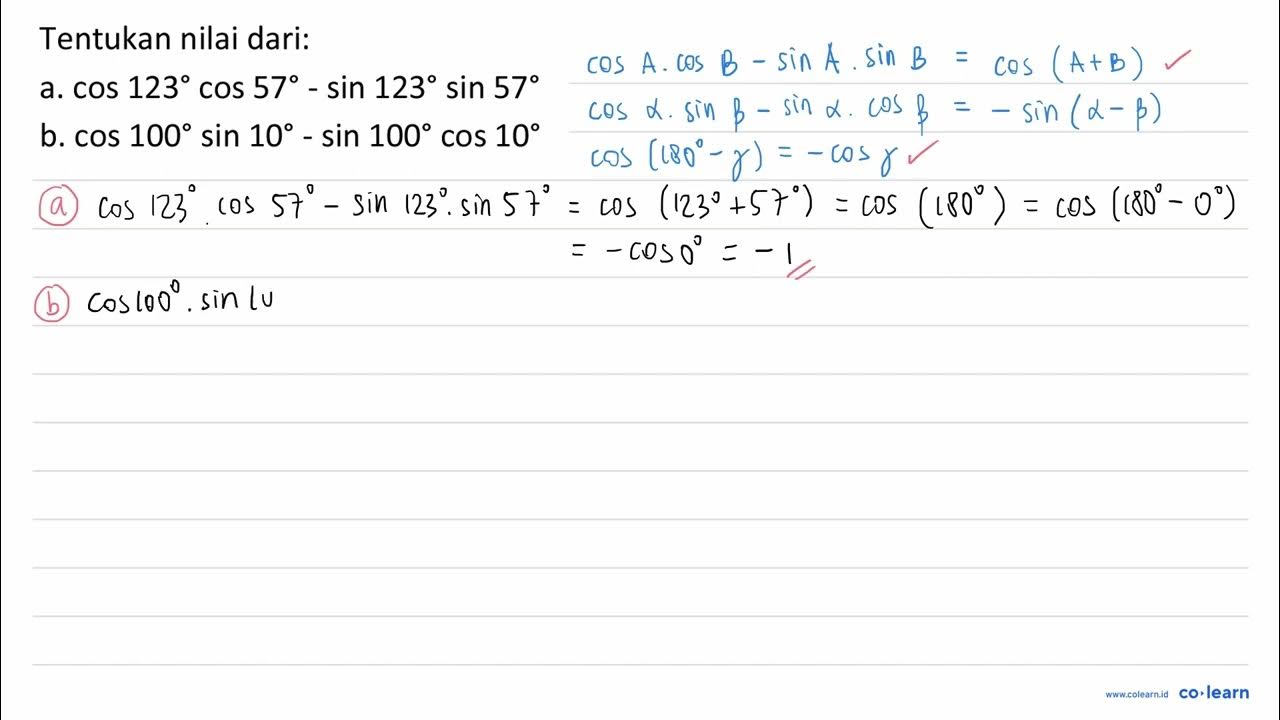 Tentukan nilai dari:
a. cos 123° cos 57° - sin 123° sin 57°
b. cos 100° sin 10° - sin 100° cos 10°
cos A . cos B - sin A . sin B = cos (A+B) ✓
cos α . sin β - sin α . cos β = - sin (α - β)
cos (180° - γ) = - cos γ ✓
a cos 123° . cos 57° - sin 123° . sin 57° = cos (123° + 57°) = cos (180°) = cos (180° - 0°)
= - cos 0° = - 1
b cos 100° . sin
www.colearn.id co·learn